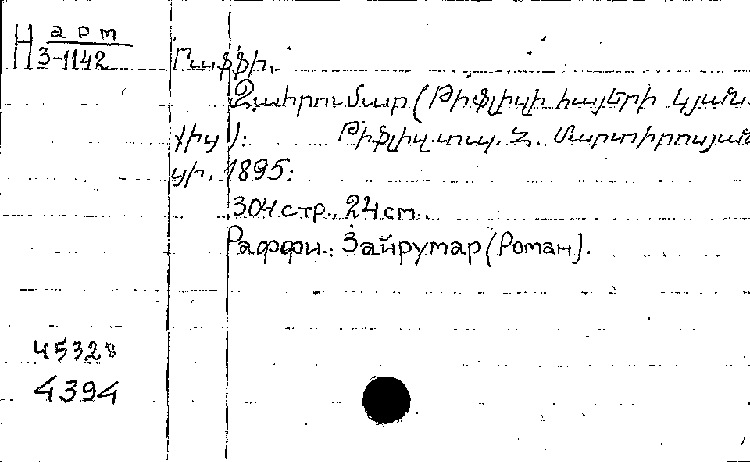 Н арm
3-1142
Րաֆֆի.
Զահրումար (Թիֆլիսի հայերի կյան-
քից): Թիֆլիս. տպ. Մ. Մարտիրոսյան-
ցի, 1895:
304 стр., 24 cm.
Раффи.: Зайрумар (Роман).
45328
4394